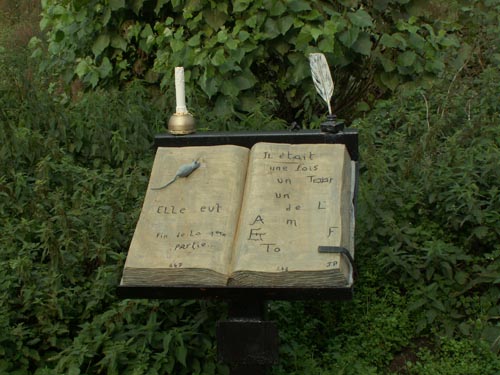 ELLe eut
Fin de la 1ère
partie
IL était
une fois
un
un
de L
A m
Et F
To
J.P